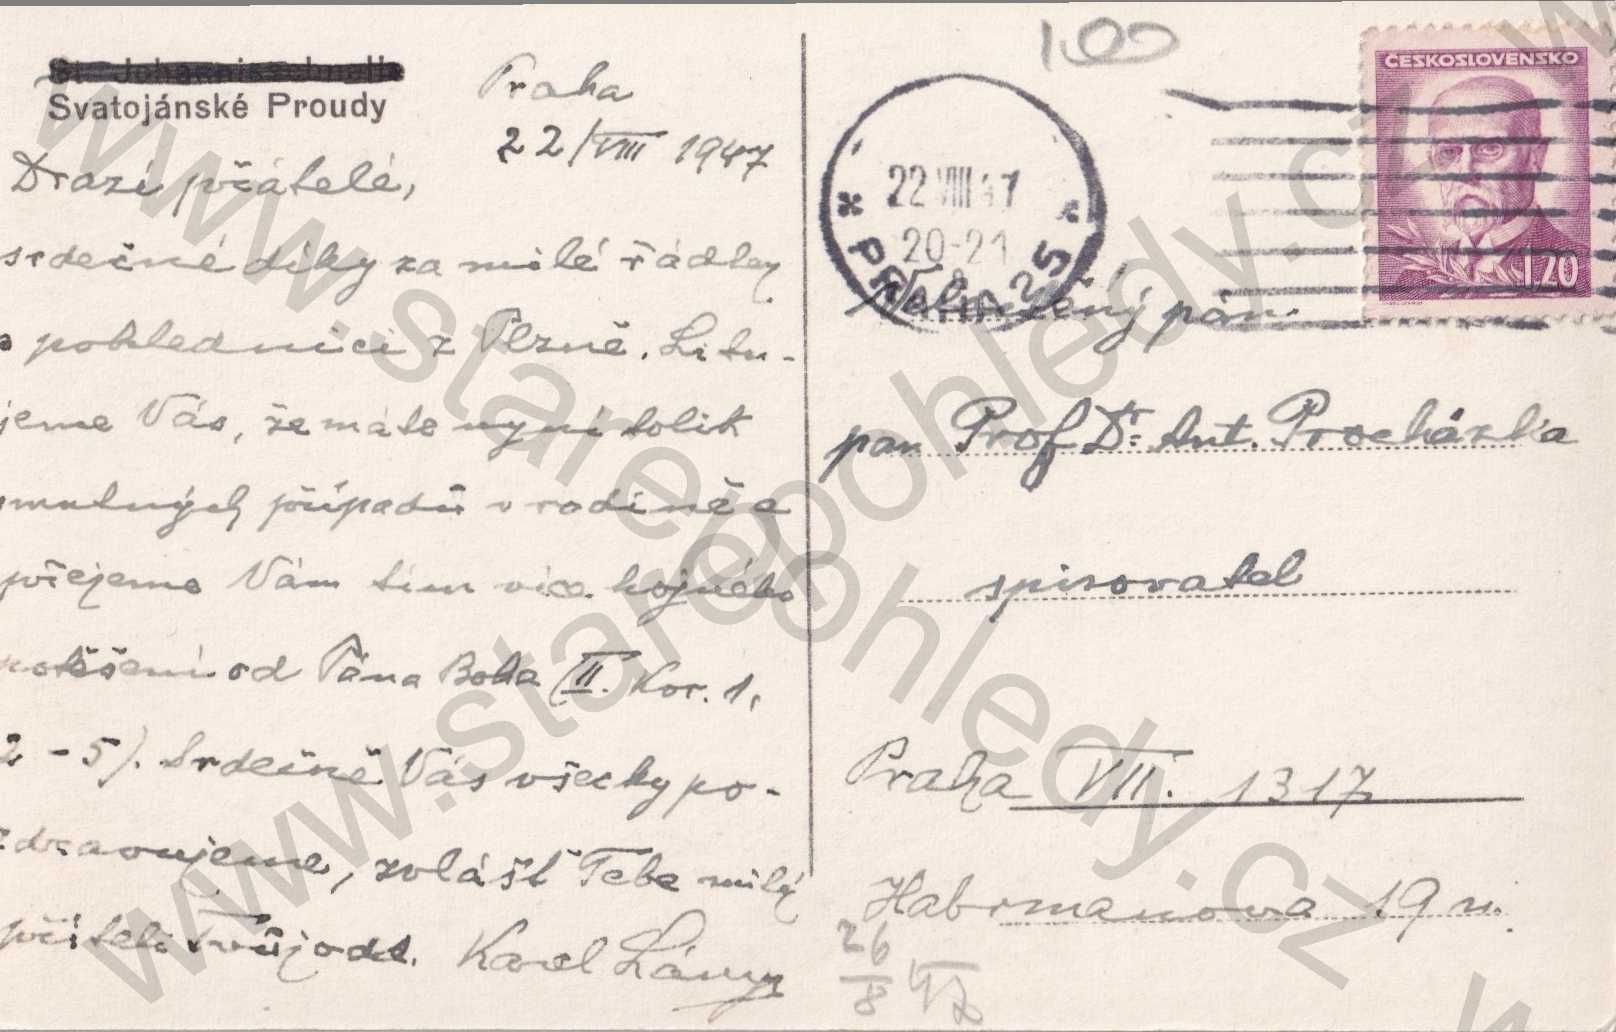 Svatojánské Proudy
Praha
22/VIII 1947
Drazí přátelé,
srdečné díky za milé řádky
a pohlednici z Plzně. Litu-
jeme Vás, že máte nyní tolik
smutných případů v rodině a
přejeme Vám tím více hojného
potěšení od Pána Boha (II. Kor. 1,
2-5). Srdečně Vás všecky po-
zdravujeme, zvlášť Tebe milý
příteli Tvůj odd. Karel Lány
100
ČESKOSLOVENSKO
1·20
22 VIII 47
20-21
PRAHA 25
Velectěný pán
pan Prof. Dr. Ant. Procházka
spisovatel
Praha VII. 1317
Habrmanova 19 n.
26
8 47
www.starepohledy.cz
www.starepohledy.cz